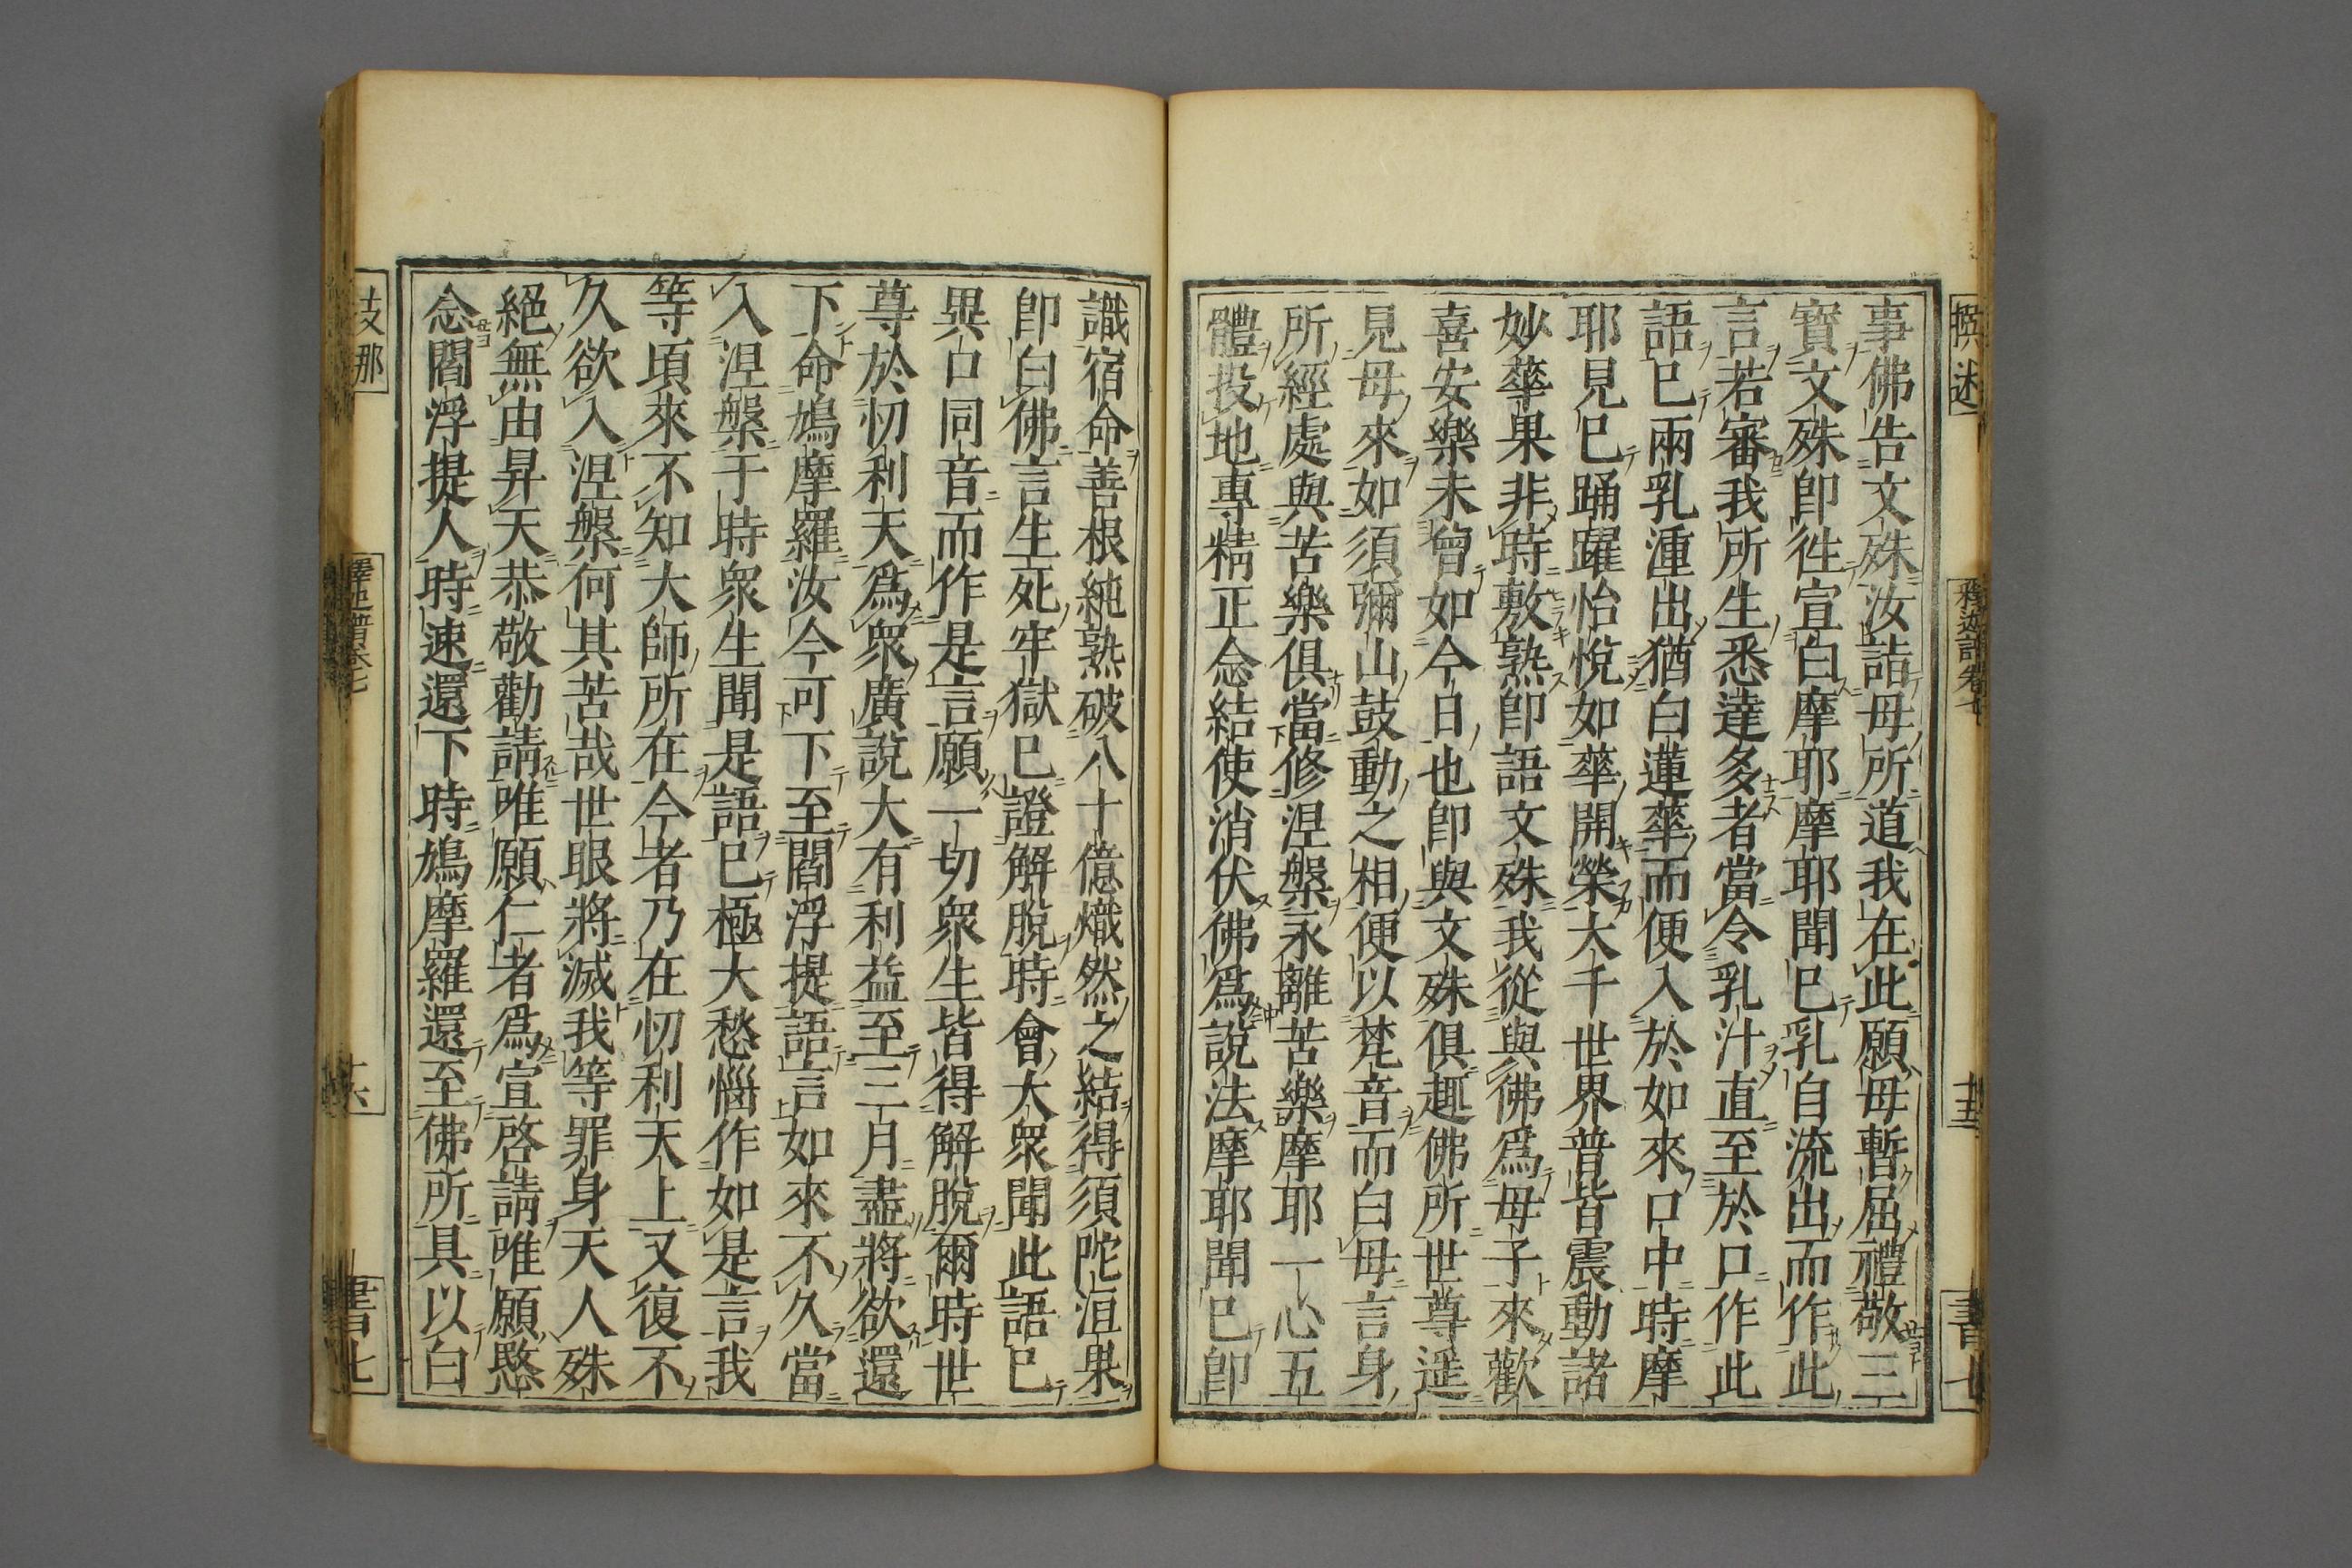 撰述
釋迦譜卷七
十五
書七
事佛告文殊汝詣母所道我在此願母暫屈禮敬三
寶文殊卽徃宣白摩耶摩耶聞已乳自流出而作此
言若審我所生悉達多者當令乳汁直至於口作此
語已兩乳湩出猶白蓮華而便入於如來口中時摩
耶見已踊躍怡悅如華開榮大千世界普皆震動諸
妙華果非時敷熟卽語文殊我從與佛爲母子來歡
喜安樂未曾如今日也卽與文殊俱趣佛所世尊遥
見母來如須彌山鼓動之相便以梵音而白母言身
所經處與苦樂俱當修涅槃永離苦樂摩耶一心五
體投地專精正念結使消伏佛爲說法摩耶聞已卽
識宿命善根純熟破八十億熾然之結得須陀洹果
卽白佛言生死牢獄已證解脫時會大衆聞此語已
異口同音而作是言願一切衆生皆得解脫爾時世
尊於忉利天爲衆廣說大有利益至三月盡將欲還
下命鳩摩羅汝今可下至閻浮提語言如來不久當
入涅槃于時衆生聞是語已極大愁惱作如是言我
等頃來不知大師所在今者乃在忉利天上又復不
久欲入涅槃何其苦哉世眼將滅我等罪身天人殊
絕無由昇天恭敬勸請唯願仁者爲宣啓請唯願愍
念閻浮提人時速還下時鳩摩羅還至佛所具以白
支那
釋迦譜卷七
十六
書七